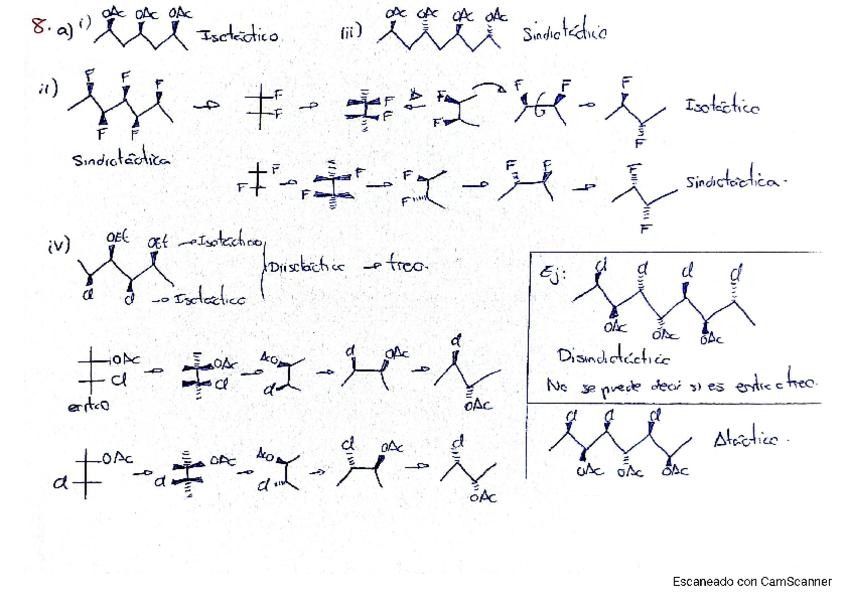 8. a) i) OAc OAc OAc Isotáctico
iii) OAc OAc OAc OAc Sindiotáctico
ii) F F F F F
Sindiotáctica
F F F F F F F F F F Isotáctico
F F F F F F F F F F Sindiotáctica.
iv) OEt OEt → Isotáctico
Cl Cl → Isotáctico
Diisotáctica → treo.
OAc Cl OAc Cl AcO Cl Cl OAc Cl OAc
eritro
Cl OAc Cl OAc AcO Cl Cl OAc Cl OAc
Ej: Cl Cl Cl Cl
OAc OAc OAc
Disindiotáctica
No se puede decir si es eritro o treo.
Cl Cl Cl
OAc OAc OAc Atáctico.
Escaneado con CamScanner